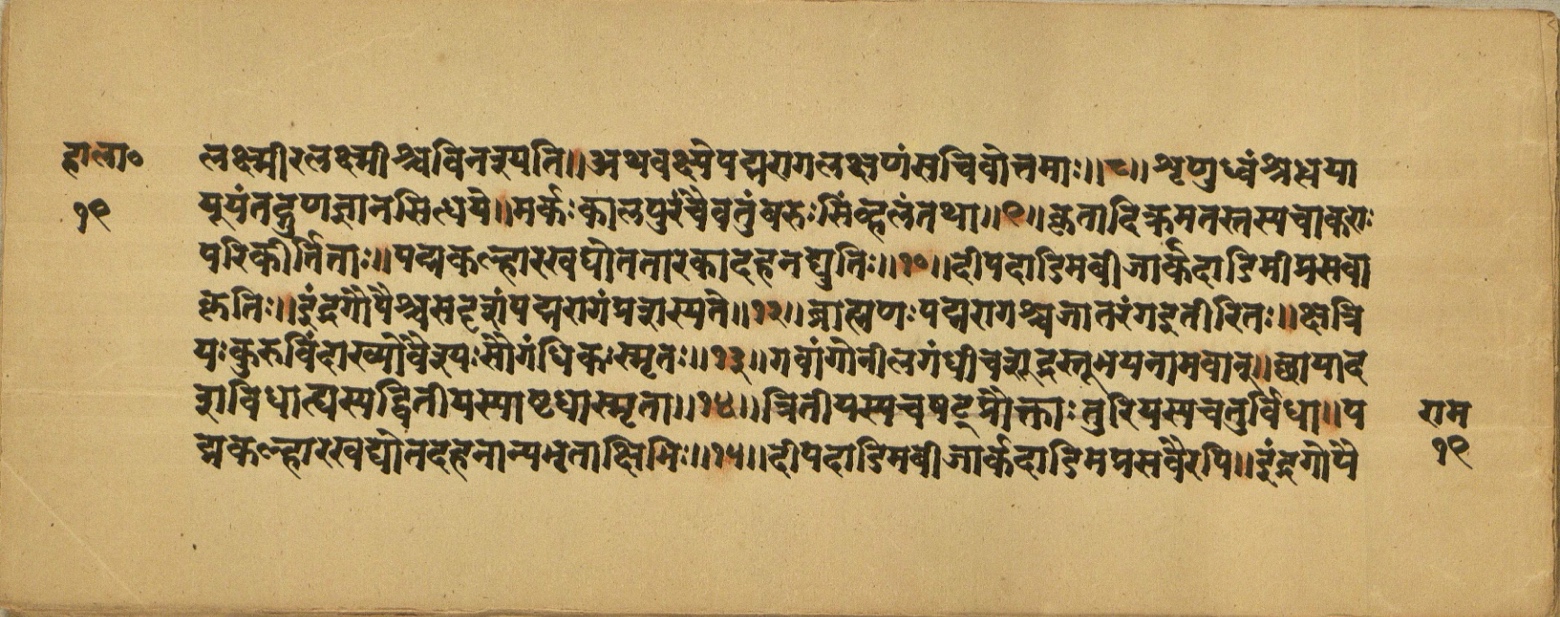 हाला० लक्ष्मीरलक्ष्मीश्चविनश्यति॥अथवक्ष्येपद्मरागलक्षणंसचिवोत्तमाः॥८॥श्रृणुध्वंश्रद्धया
१९ यूयंतद्गुणज्ञानसिद्धये॥मर्कःकालपुरंचैवतुंबरुःसिंव्हलंतथा॥९॥कृतादिक्रमतस्तस्यचाकराः
परिकीर्तिताः॥पद्मकल्हारखद्योततारकादहनद्युतिः॥१०॥दीपदाडिमबीजार्कदाडिमीप्रसवा
कृतिः॥इंद्रगोपैश्चसदृशंपद्मरागंप्रशस्यते॥१२॥ब्राह्मणःपद्मरागश्चजातरंगइतीरितः॥क्षत्रि
यःकुरुविंदाख्योवैश्यःसौगंधिकःस्मृतः॥१३॥गवांगोनीलगंधीचशूद्रस्तूभयनामवान्॥छायाद
शविधाद्यस्यद्वितीयस्याष्टधास्मृता॥१४॥त्रितीयस्यचषट्प्रोक्ताःतुरियस्यचतुर्विधा॥प राम
द्मकल्हारखद्योतदहनान्यभृताक्षिभिः॥१५॥दीपदाडिमबीजार्कदाडिमप्रसवैरपि॥इंद्रगोपै १९